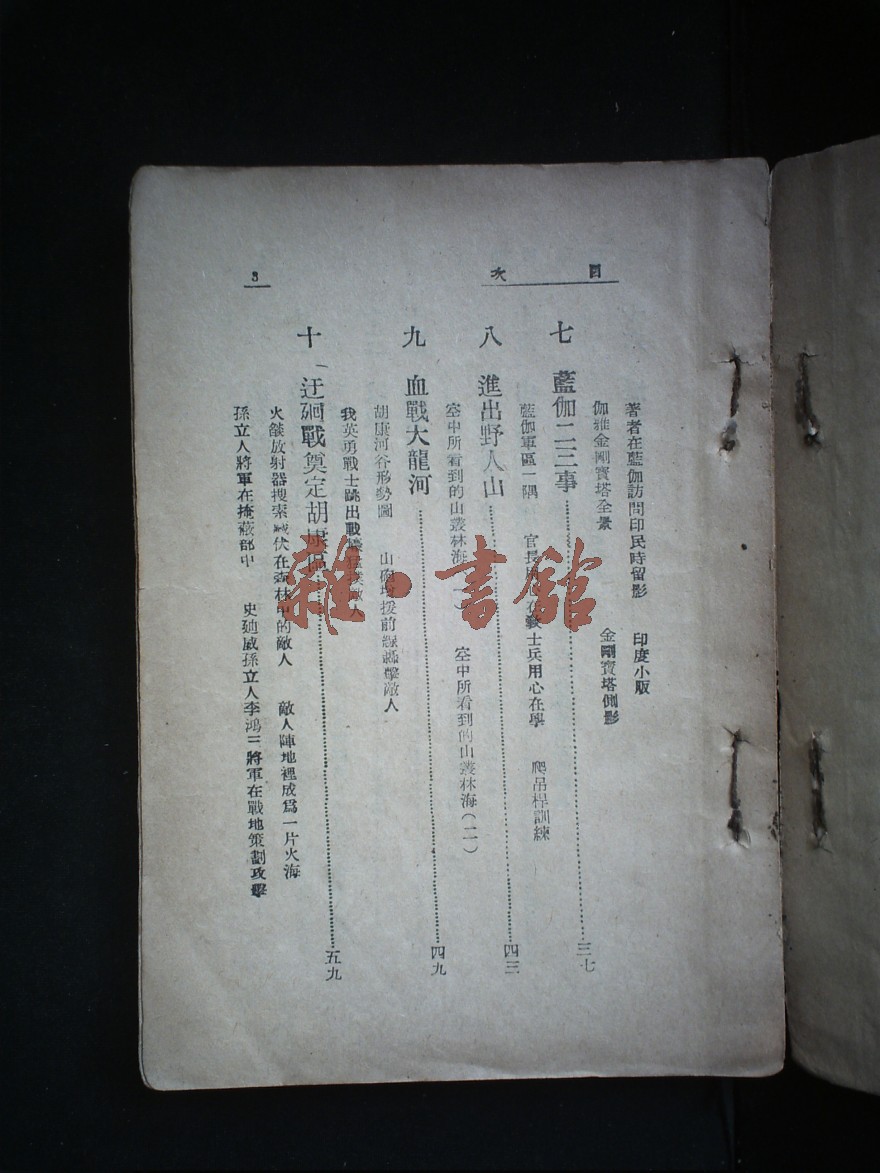 目次
著者在藍伽訪問印民時留影 印度小販
伽雅金剛寶塔全景 金剛寶塔側影
七 藍伽二三事 三七
藍伽軍區一隅 官長 士兵用心在學 爬吊桿訓練
八 進出野人山 四三
空中所看到的山叢林海(一) 空中所看到的山叢林海(二)
九 血戰大龍河 四九
胡康河谷形勢圖 山砲 援前線轟擊敵人
我英勇戰士跳出戰壕 敵人
十 迂廻戰奠定胡康區 五九
火燄放射器搜索藏伏在森林中的敵人 敵人陣地裡成爲一片火海
孫立人將軍在掩蔽部中 史廸威孫立人李鴻三將軍在戰地策劃攻擊
3
雜·書館